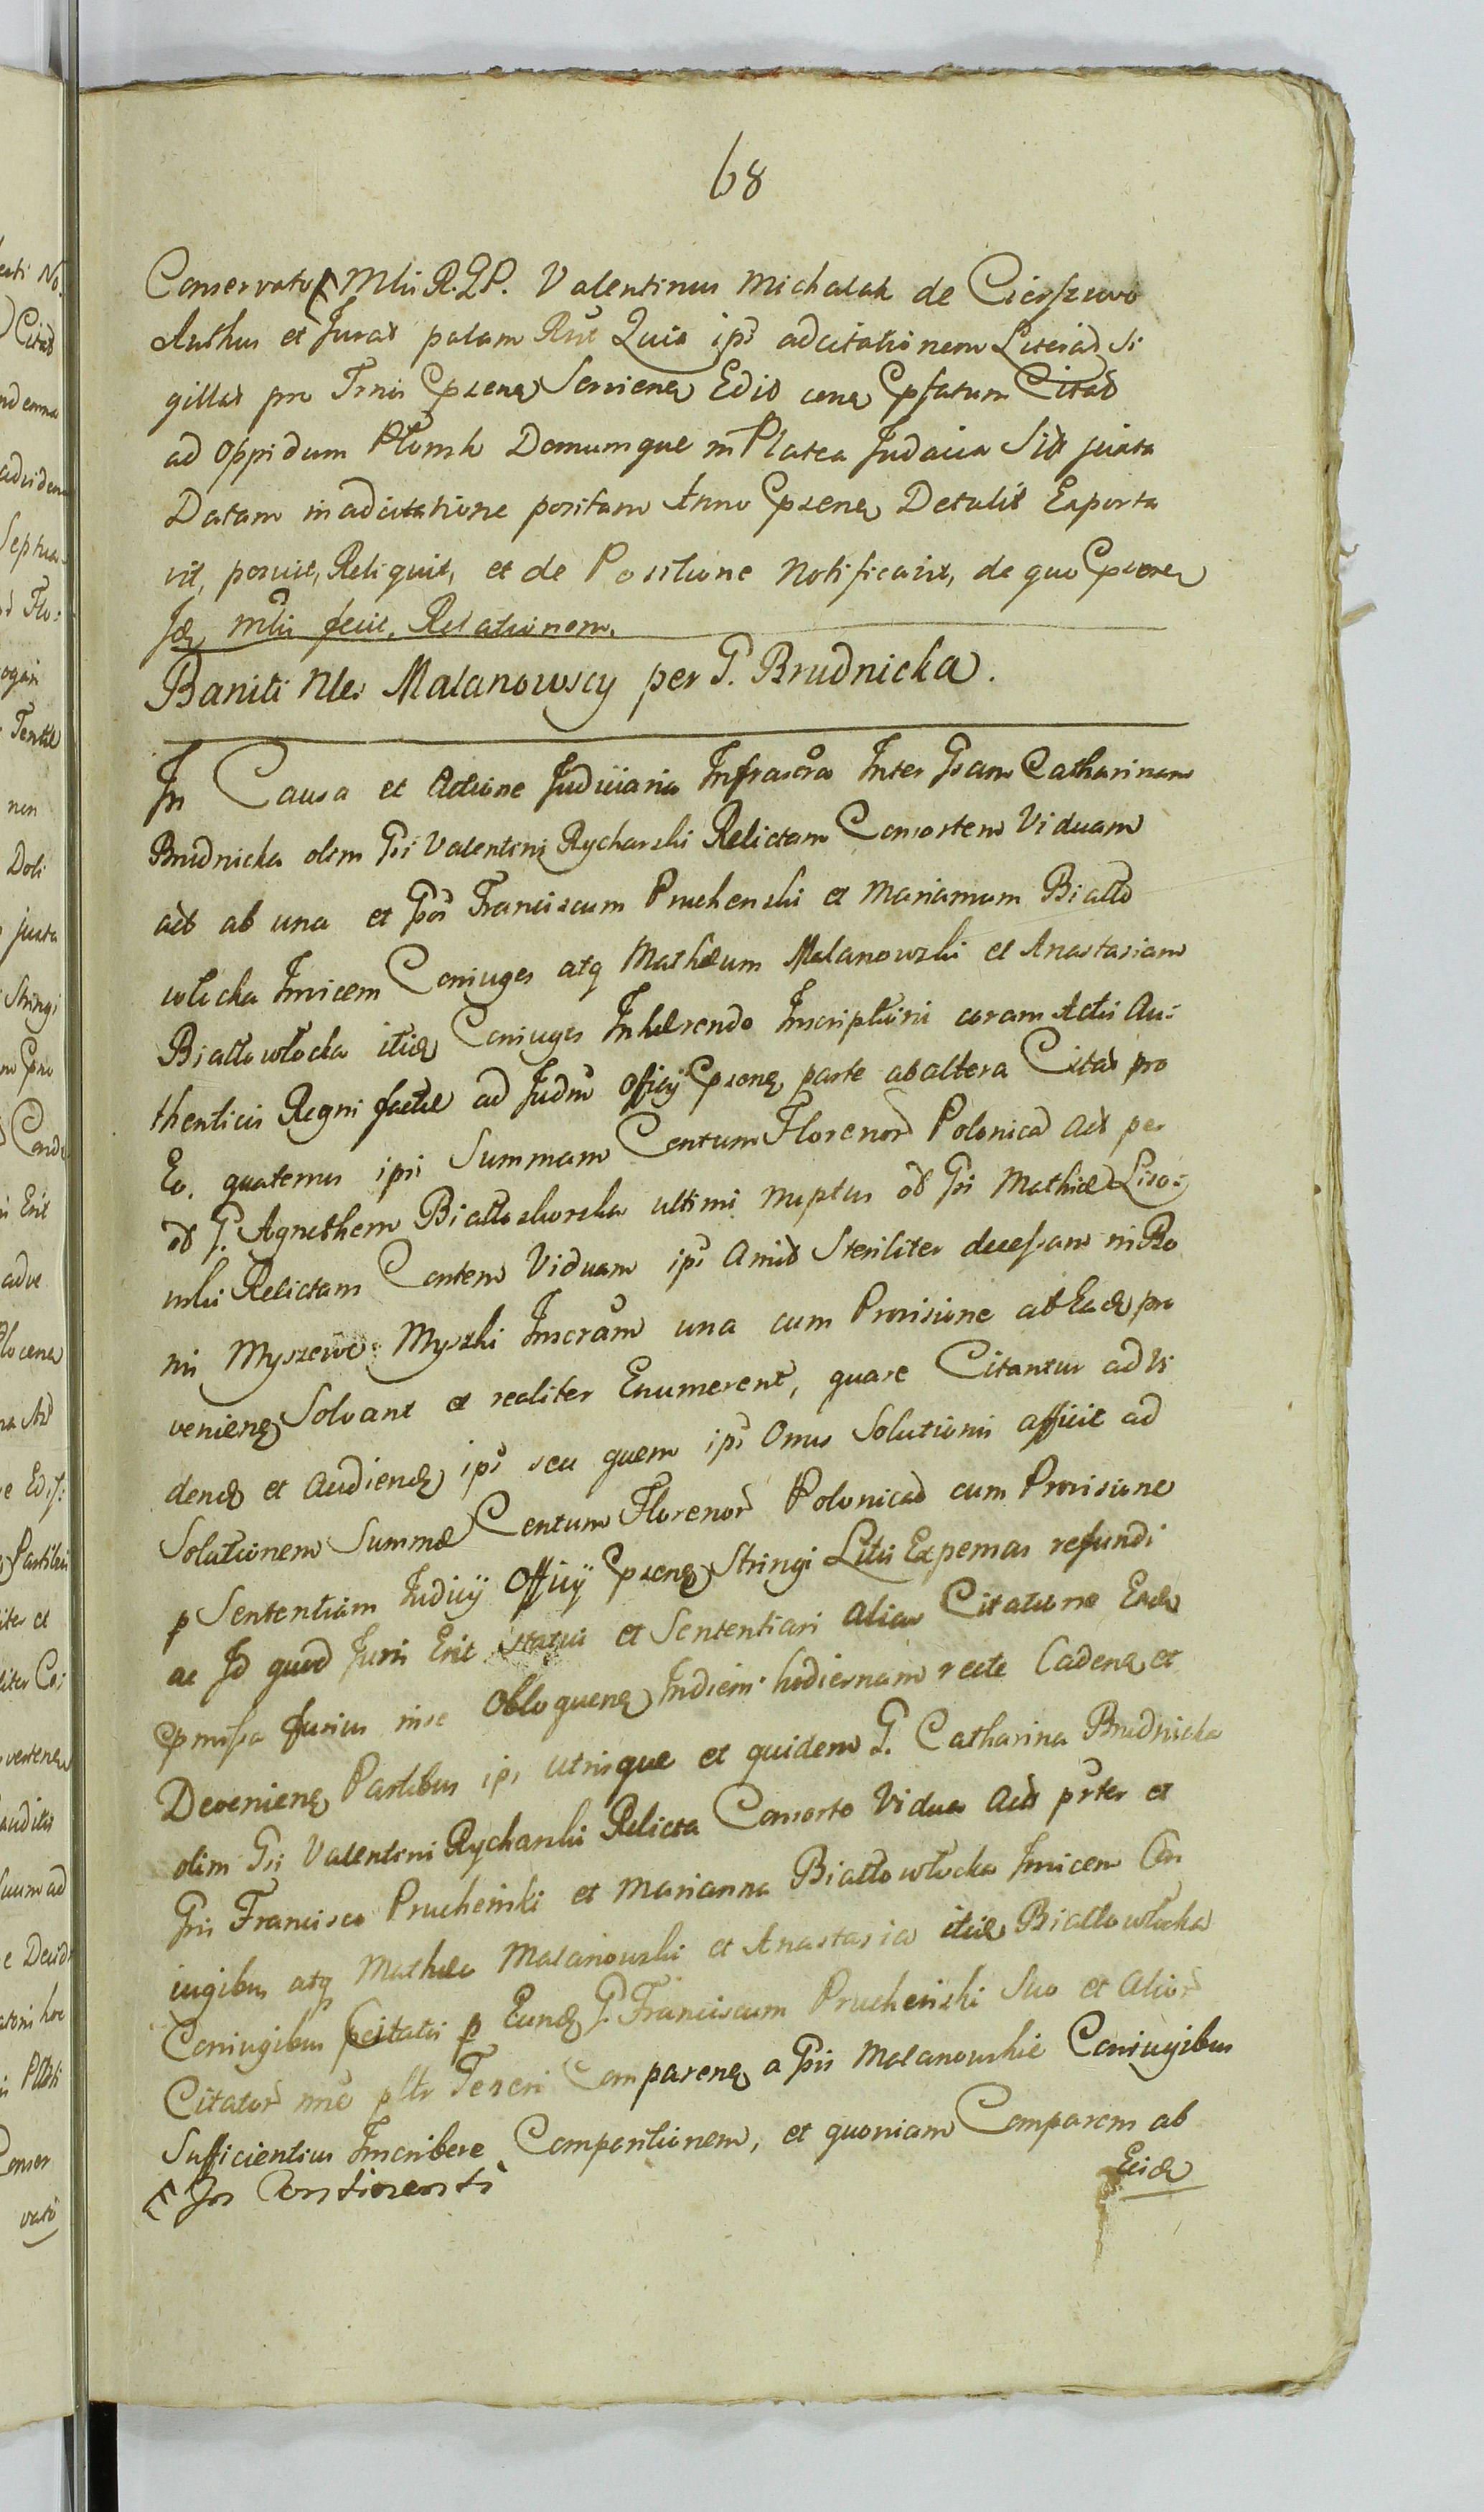 68
Conservato Mlii R.G.P. Valentinus Michalak de Cierszewo
Authus et Jurat palam Rut Quia ips adcitationem Literiad Si
gillat pro Trnis Cpzena Serviena Edid Cpfatum Citat
ad Oppidum Plonsk Domumque in Platea Judaica Sit juxta
Datam in adcitatione positam Anno Cpzena Detulit Exporta
vit, posuit, Reliquit, et de Positione Notificavit, de quo Cpzena
mlii fecit Relationem.
Baniti Nles Malanowscy per G. Brudnicka.
In Causa et Actione Judiciaria Infrascra Inter Gsam Catharinam
Brudnicka olim Gsi Valentini Rycharski Relictam Consortem Viduam
act ab una et Gsos Franciscum Pruchenski et Mariannam Biallo
wlocka Invicem Coniuges atq Mathæum Malanowski et Anastasiam
Biallowlocka itid Coniuges Inhærendo Inscriptioni coram Actis Au:
thenticis Regni factæ ad Judm Officij Cpzena parte ab altera Citat pro
Eo, quatenus ipsi Summam Centum Florenor Polonicad Act per
od G. Agnethem Bialloskorska ultimi nuptus od Gsi Mathiæ Liso:
wski Relictam Contem Viduam ips Amit Steriliter decessam in Bo
nis Myszewo Myszki Inscram una cum Provisione ab Ead pro
veniena Solvant et realiter Enumerent, quare Citantur ad Vi
dend et Audiend ips seu quem ips Onus Solutionis afficit ad
Solutionem Summæ Centum Florenor Polonicad cum Provisione
p Sententiam Judicij Officij Cpzena Stringi Litis Expensas refundi
ac Id quod Juris Erit statui et Sententiari alias Citatione Ead
Cpmissa fusius in se Obloquena Indiem hodiernam recte Cadena et
Deveniena Partibus ips utrisque et quidem G. Catharina Brudnicka
olim Gsi Valentini Rycharski Relicta Consorte Vidua Act prter et
Gsis Francisco Pruchenski et Marianna Biallowlocka Invicem Con
iugibus atq Mathæo Malanowski et Anastasia itid Biallowlocka
Coniugibus Citatis p Eund G. Franciscum Pruchenski Suo et Alior
Citator nne plr Terzeri Comparena a Gsis Malanowskie Coniugibus
Sufficientius Inscribere Comparitionem, et quoniam Comparens ab
Eisd
In Continenti